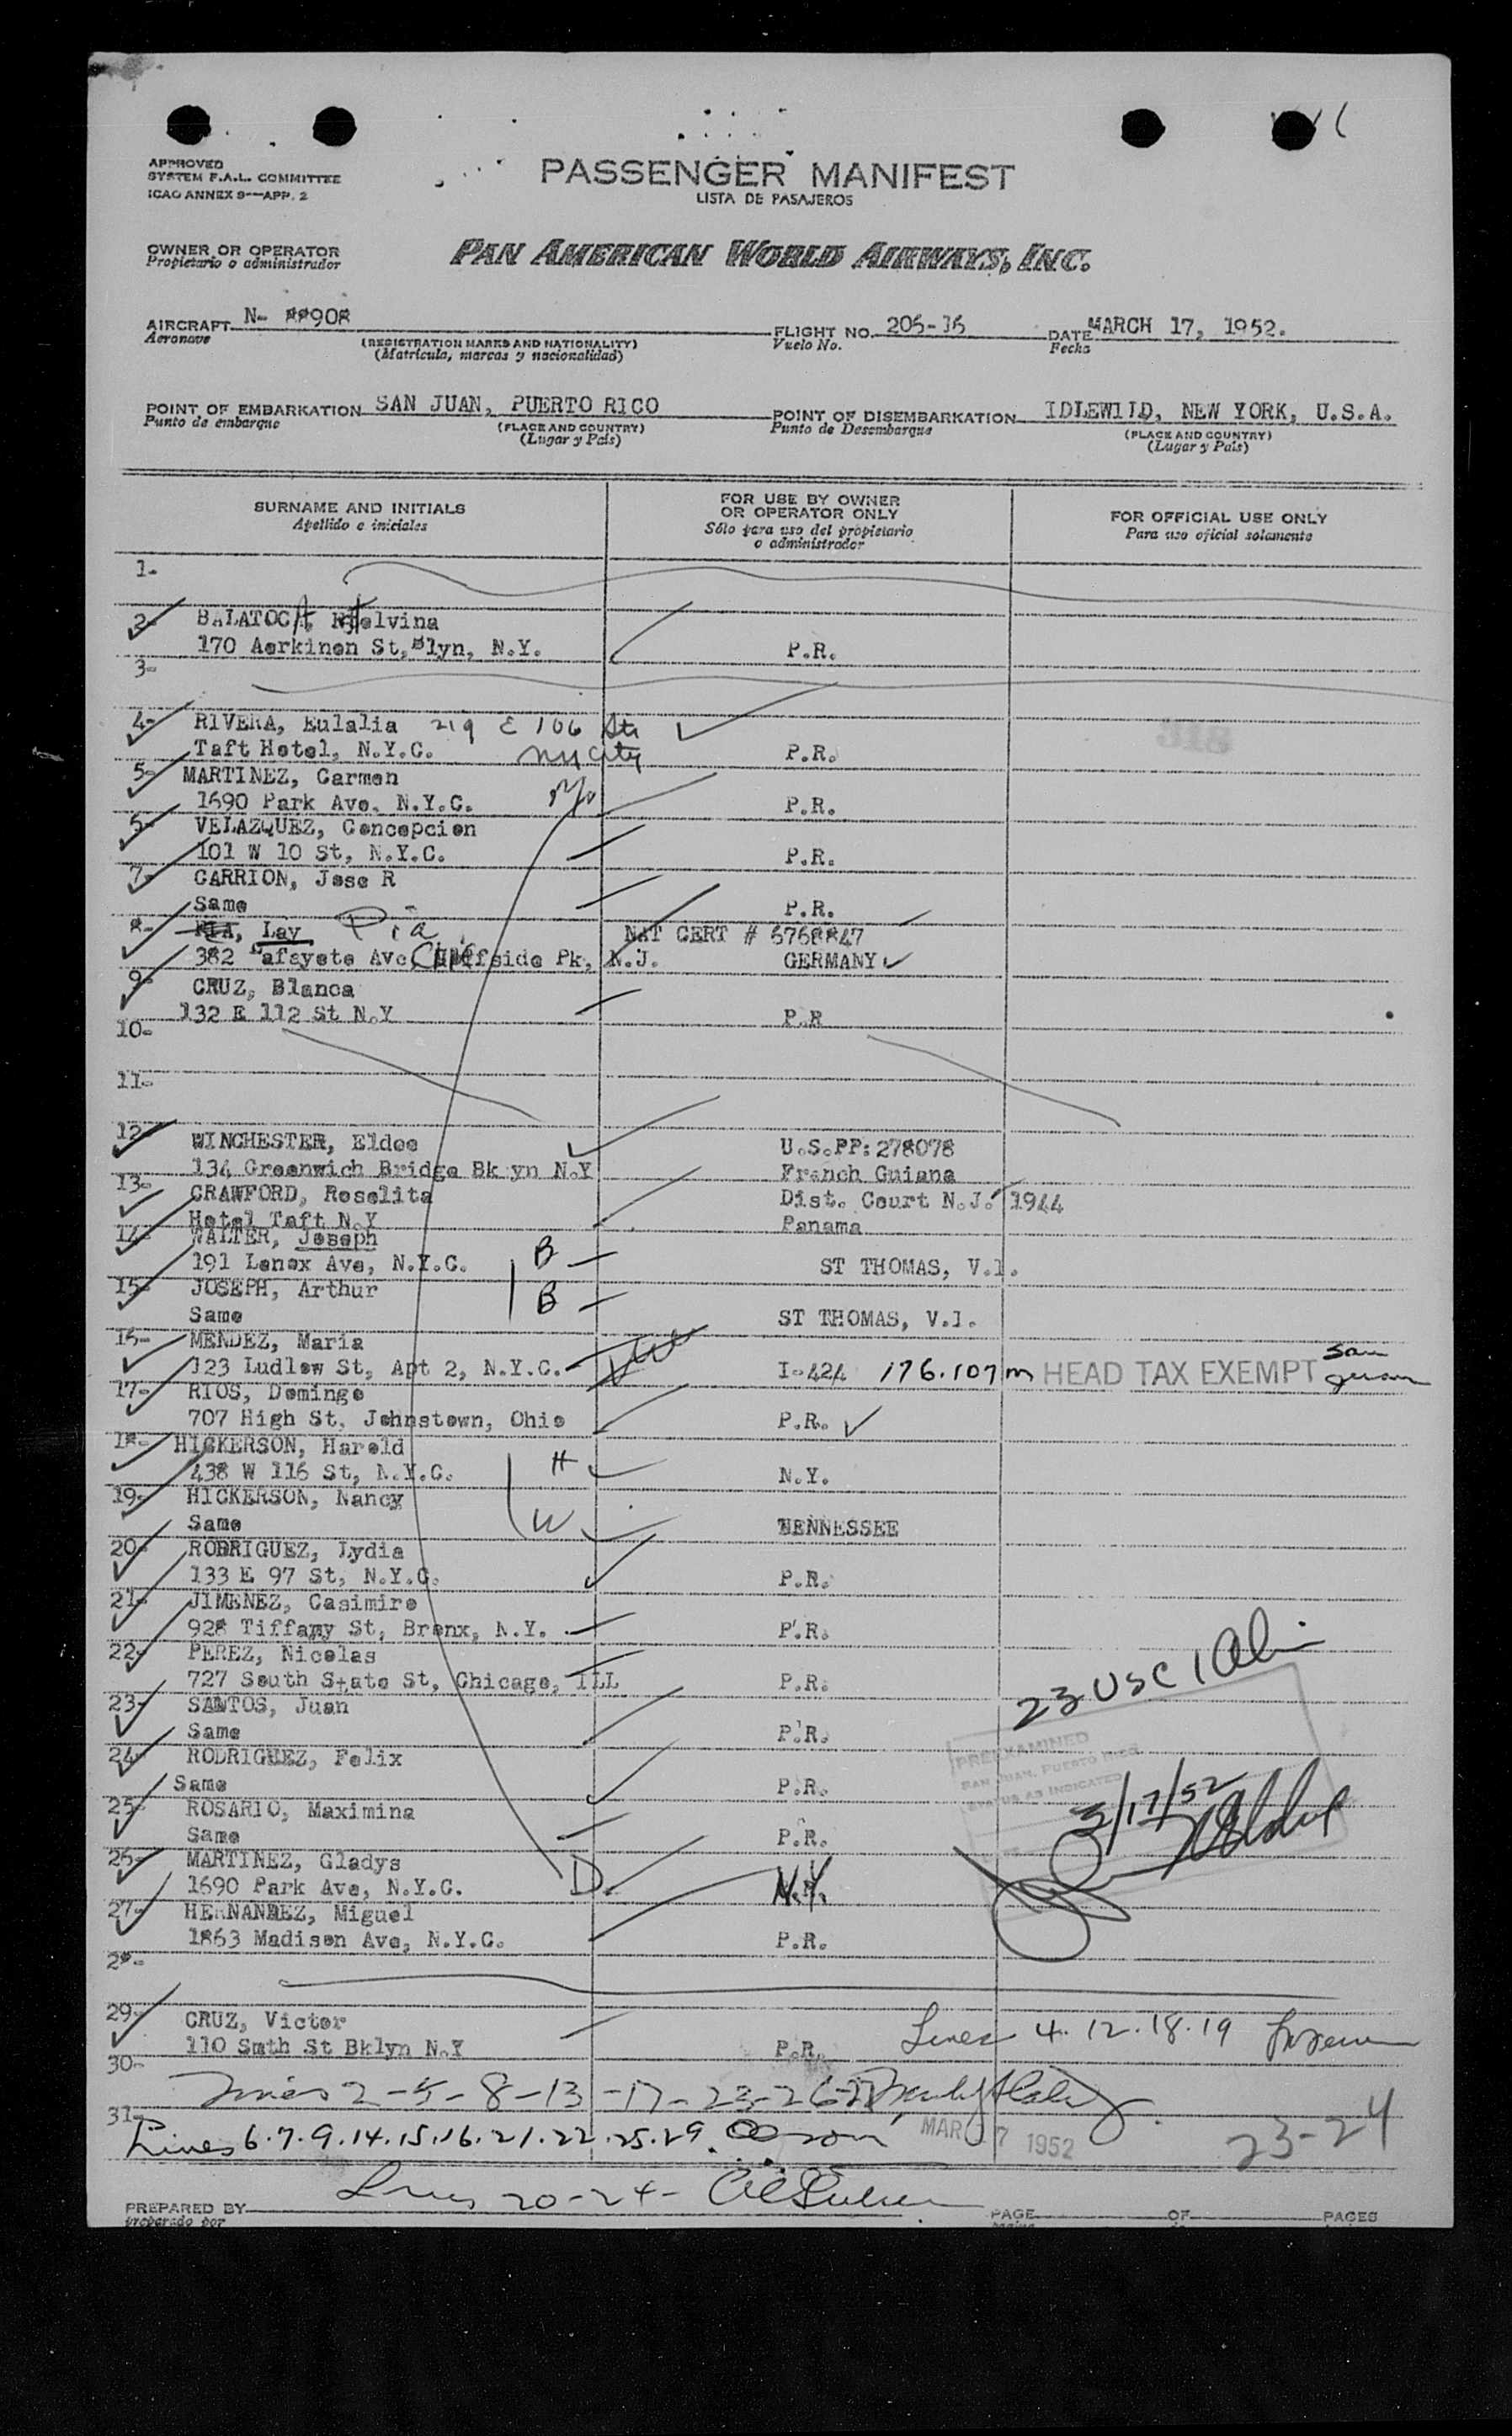 APPROVED
SYSTEM F.A.L. COMMITTEE
ICAO ANNEX 9—APP. 2
PASSENGER MANIFEST
LISTA DE PASAJEROS
OWNER OR OPERATOR
Propietario o administrador
PAN AMERICAN WORLD AIRWAYS, INC.
AIRCRAFT N- **908
Aeronave
(REGISTRATION MARKS AND NATIONALITY)
(Matrícula, marcas y nacionalidad)
FLIGHT NO. 205-16
Vuelo No.
DATE MARCH 17, 1952.
Fecha
POINT OF EMBARKATION SAN JUAN, PUERTO RICO
Punto de embarque
(PLACE AND COUNTRY)
(Lugar y País)
POINT OF DISEMBARKATION IDLEWILD, NEW YORK, U.S.A.
Punto de Desembarque
(PLACE AND COUNTRY)
(Lugar y País)
SURNAME AND INITIALS
Apellido e iniciales
FOR USE BY OWNER
OR OPERATOR ONLY
Sólo para uso del propietario
o administrador
FOR OFFICIAL USE ONLY
Para uso oficial solamente
1-
2- BALATOCA,
170 Aerkinen St, Blyn, N.Y. P.R.
3-
4- RIVERA, Eulalia 219 E 106 St
Taft Hotel, N.Y.C. NY City P.R.
5- MARTINEZ, Carmen
1690 Park Ave. N.Y.C. Mo P.R.
6- VELAZQUEZ, Concepcion
101 W 10 St, N.Y.C. P.R.
7- CARRION, Jose R
Same P.R.
8- PIA, Lay Pia NAT CERT # 6768847
382 Lafayete Ave, Cliffside Pk, N.J. GERMANY
9- CRUZ, Blanca
132 E 112 St N.Y P.R
10-
11-
12- WINCHESTER, Eldee U.S.PP: 278078
134 Greenwich Bridge Bk yn N.Y French Guiana
13- CRAWFORD, Roselita Dist. Court N.J. 1944
Hotel Taft N.Y Panama
14- WALTER, Joseph
191 Lenox Ave, N.Y.C. B ST THOMAS, V.I.
15- JOSEPH, Arthur B
Same ST THOMAS, V.I.
16- MENDEZ, Maria
123 Ludlow St, Apt 2, N.Y.C. I-424 176.107m HEAD TAX EXEMPT San Juan
17- RIOS, Domingo
707 High St, Johnstown, Ohio P.R.
18- HICKERSON, Harold
438 W 116 St, N.Y.C. H N.Y.
19- HICKERSON, Nancy
Same W TENNESSEE
20- RODRIGUEZ, Lydia
133 E 97 St, N.Y.C. P.R.
21- JIMENEZ, Casimiro
928 Tiffany St, Bronx, N.Y. P.R.
22- PEREZ, Nicolas
727 South State St, Chicago, ILL P.R.
23- SANTOS, Juan
Same P.R.
24- RODRIGUEZ, Felix
Same P.R.
25- ROSARIO, Maximina
Same P.R.
26- MARTINEZ, Gladys
1690 Park Ave, N.Y.C. D. N.Y.
27- HERNANDEZ, Miguel
1863 Madison Ave, N.Y.C. P.R.
23 USC 1 Ali
PREEXAMINED
SAN JUAN, PUERTO RICO
STATUS AS INDICATED
3/17/52
28-
29- CRUZ, Victor
110 Smth St Bklyn N.Y P.R.
Lines 4.12.18.19
30-
Lines 2-5-8-13-17-23-26-27
31-
Lines 6.7.9.14.15.16.21.22.25.29.
MAR 17 1952
23-24
Lines 20-24-
PREPARED BY
preparado por
PAGE
OF
PAGES